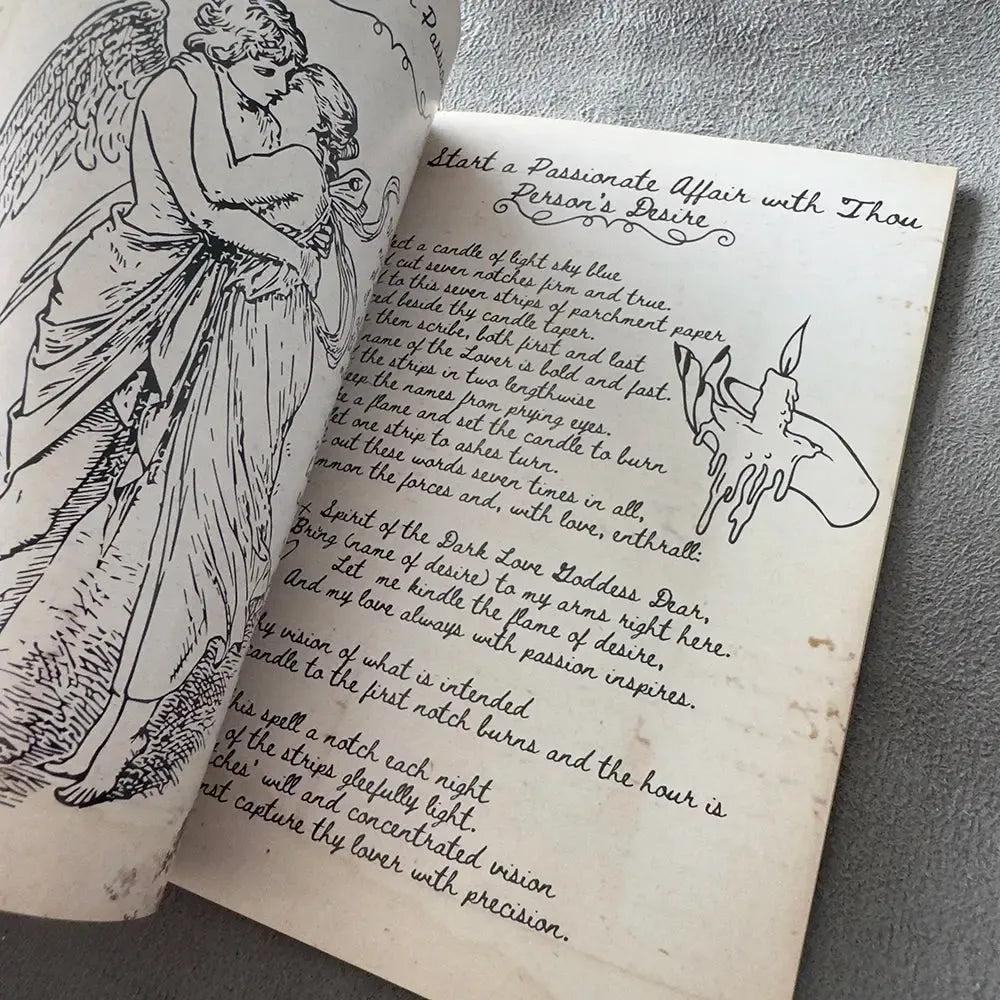 Passi
Start a Passionate Affair with Thou
Person's Desire
a candle of light sky blue
cut seven notches firm and true.
to this seven strips of parchment paper
beside thy candle taper.
then scribe, both first and last
name of the Lover is bold and fast.
the strips in two lengthwise
the names from prying eyes.
a flame and set the candle to burn
one strip to ashes turn.
out these words seven times in all,
the forces and, with love, enthrall:
Spirit of the Dark Love Goddess Dear,
Bring (name of desire) to my arms right here.
Let me kindle the flame of desire,
And my love always with passion inspires.
vision of what is intended
candle to the first notch burns and the hour is
this spell a notch each night
of the strips gleefully light.
will and concentrated vision
capture thy lover with precision.